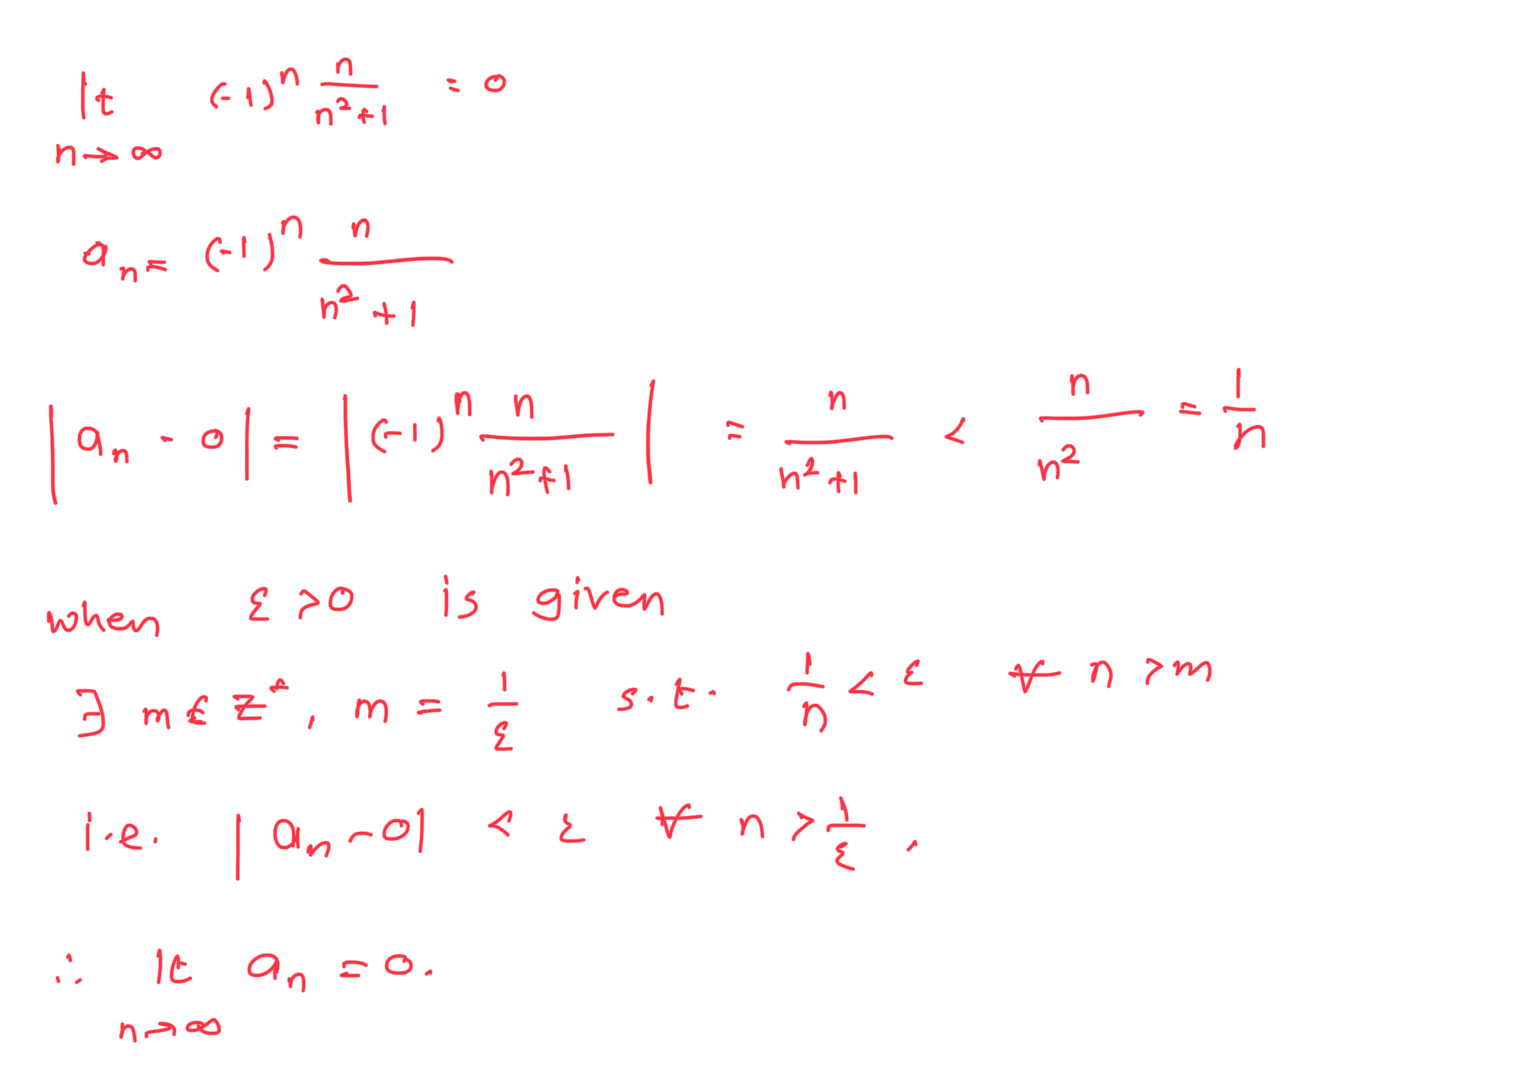 lt (-1)^n n/(n²+1) = 0
n→∞
a_n = (-1)^n n/(n²+1)
|a_n - 0| = |(-1)^n n/(n²+1)| = n/(n²+1) < n/n² = 1/n
when ε > 0 is given
∃ m ∈ Z⁺, m = 1/ε s.t. 1/n < ε ∀ n > m
i.e. |a_n - 0| < ε ∀ n > 1/ε.
∴ lt a_n = 0.
n→∞